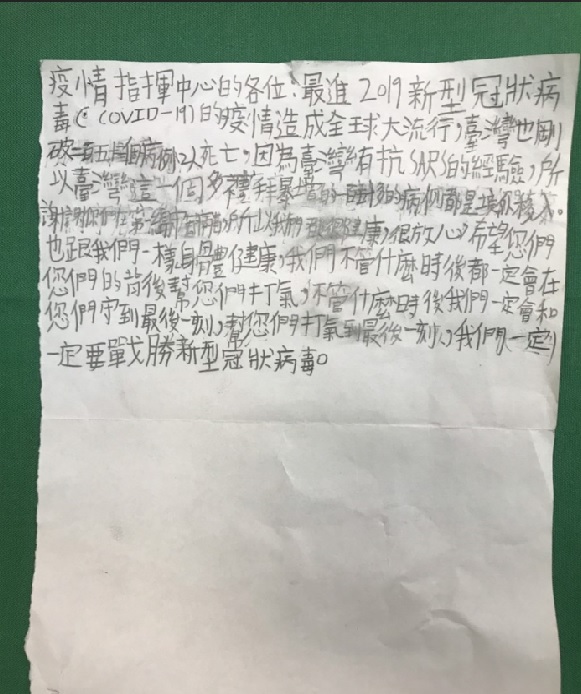 疫情指揮中心的各位:最進2019新型冠狀病
毒(COVID-19)的疫情造成全球大流行,臺灣也剛
破 病例,以死亡,因為臺灣有抗SARS的經驗,所
以臺灣這一個多禮拜暴增的 的病例都是境外移入。
謝謝你們在第一線 ,所以我們 健康,很放心,希望您們
也跟我們一樣身體健康,我們不管什麼時後都一定會在
您們的背後幫您們打氣,不管什麼時後我們一定會和
您們守到最後一刻,幫您們打氣到最後一刻,我們一定
一定要戰勝新型冠狀病毒。